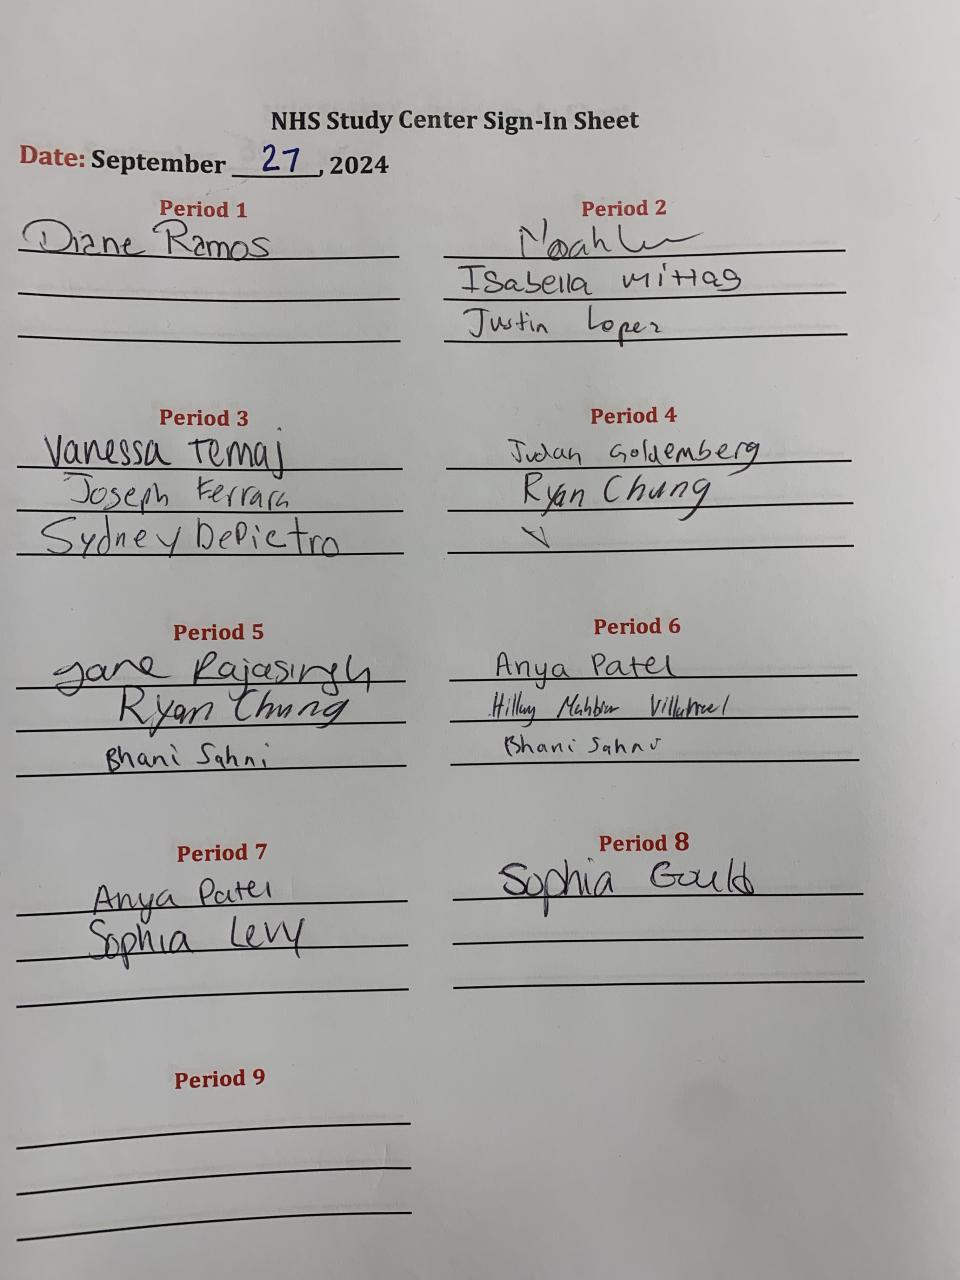 NHS Study Center Sign-In Sheet
Date: September 27, 2024
Period 1
Diane Ramos
Period 2
Noah
Isabella Mittag
Justin Lopez
Period 3
Vanessa Temaj
Joseph Ferrara
Sydney DePietro
Period 4
Judah Goldemberg
Ryan Chung
Period 5
Jane Rajasingh
Ryan Chung
Bhani Sahni
Period 6
Anya Patel
Hillary Villarreal
Bhani Sahni
Period 7
Anya Patel
Sophia Levy
Period 8
Sophia Gould
Period 9